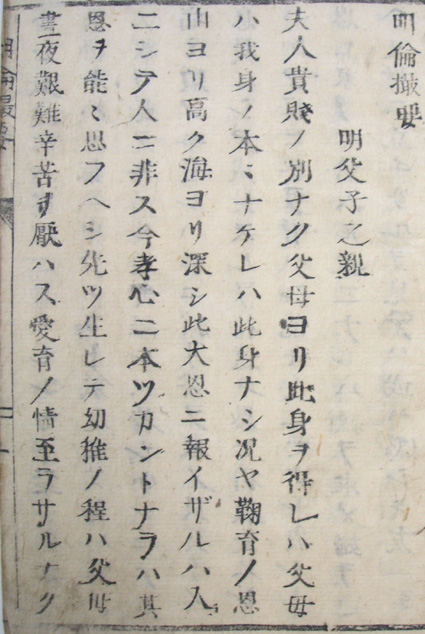 明倫撮要
明父子之親
夫人貴賤ノ別ナク父母ヨリ此身ヲ得レハ父母
ハ我身ノ本ミナケレハ此身ナシ况ヤ鞠育ノ恩
山ヨリ高ク海ヨリ深シ此大恩ニ報イザルハ人
ニシテ人ニ非ス今孝心ニ本ツカントナラハ其
恩ヲ能ミ思フヘシ先ツ生レテ幼稚ノ程ハ父母
晝夜艱難辛苦ヲ厭ハス愛育ノ情至ラサルナク